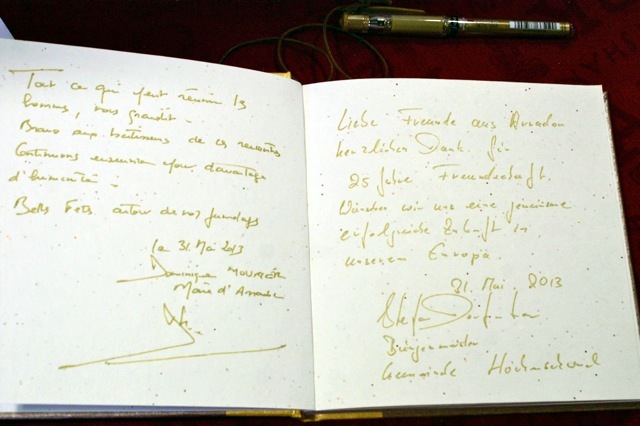 Tout ce qui peut réunir les
hommes, nous grandit.
Bravo aux bâtisseurs de ces rencontres
Continuons ensemble pour davantage
d'humanité.
Belles Fêtes autour de nos jumelages
le 31 Mai 2013
Dominique
Maire d'Arradon
Liebe Freunde aus Arradon
herzlichen Dank für
25 Jahre Freundschaft.
Wünschen wir uns eine gemeinsame
erfolgreiche Zukunft in
unserem Europa.
31. Mai. 2013
Stefan
Bürgermeister
Gemeinde Höchenschwand